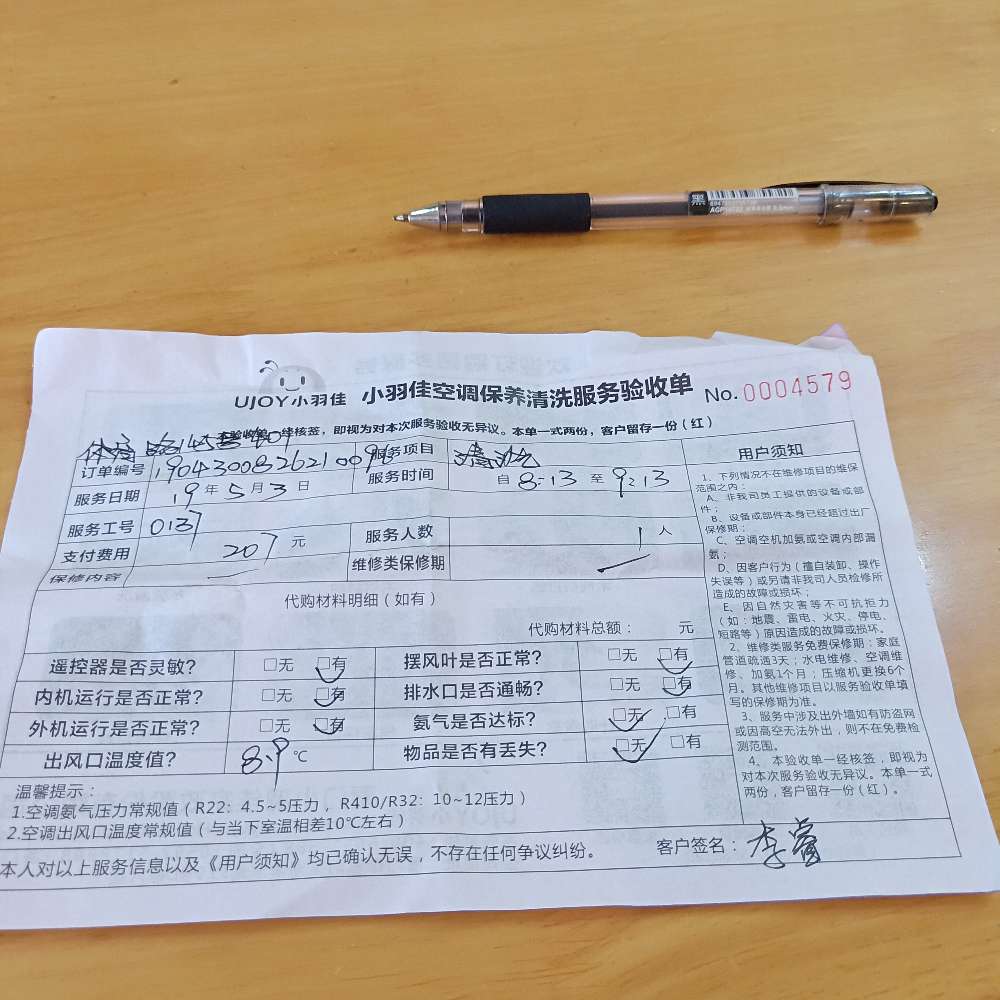 UJOY小羽佳 小羽佳空调保养清洗服务验收单 No.0004579
本验收单一经核签，即视为对本次服务验收无异议。本单一式两份，客户留存一份（红）
订单编号 服务项目 清洗
服务日期 19年5月3日 服务时间 自8:13至9:13
服务工号 013
支付费用 207元 服务人数 1人
保修内容 维修类保修期
代购材料明细（如有）
代购材料总额： 元
遥控器是否灵敏？ □无 □有 摆风叶是否正常？ □无 □有
内机运行是否正常？ □无 □有 排水口是否通畅？ □无 □有
外机运行是否正常？ □无 □有 氨气是否达标？ □无 □有
出风口温度值？ 8.9℃ 物品是否有丢失？ □无 □有
温馨提示：
1.空调氨气压力常规值（R22：4.5~5压力，R410/R32：10~12压力）
2.空调出风口温度常规值（与当下室温相差10℃左右）
本人对以上服务信息以及《用户须知》均已确认无误，不存在任何争议纠纷。 客户签名：李睿
用户须知
1、下列情况不在维修项目的维保
范围之内：
A、非我司员工提供的设备或部
件；
B、设备或部件本身已经超过出厂
保修期；
C、空调空机加氨或空调内部漏
氨；
D、因客户行为（擅自装卸、操作
失误等）或另请非我司人员检修所
造成的故障或损坏；
E、因自然灾害等不可抗拒力
（如：地震、雷电、火灾、停电、
短路等）原因造成的故障或损坏。
2、维修类服务免费保修期：家庭
管道疏通3天；水电维修、空调维
修、加氨1个月；压缩机更换6个
月。其他维修项目以服务验收单填
写的保修期为准。
3、服务中涉及出外墙如有防盗网
或因高空无法外出，则不在免费检
测范围。
4、本验收单一经核签，即视为
对本次服务验收无异议。本单一式
两份，客户留存一份（红）。